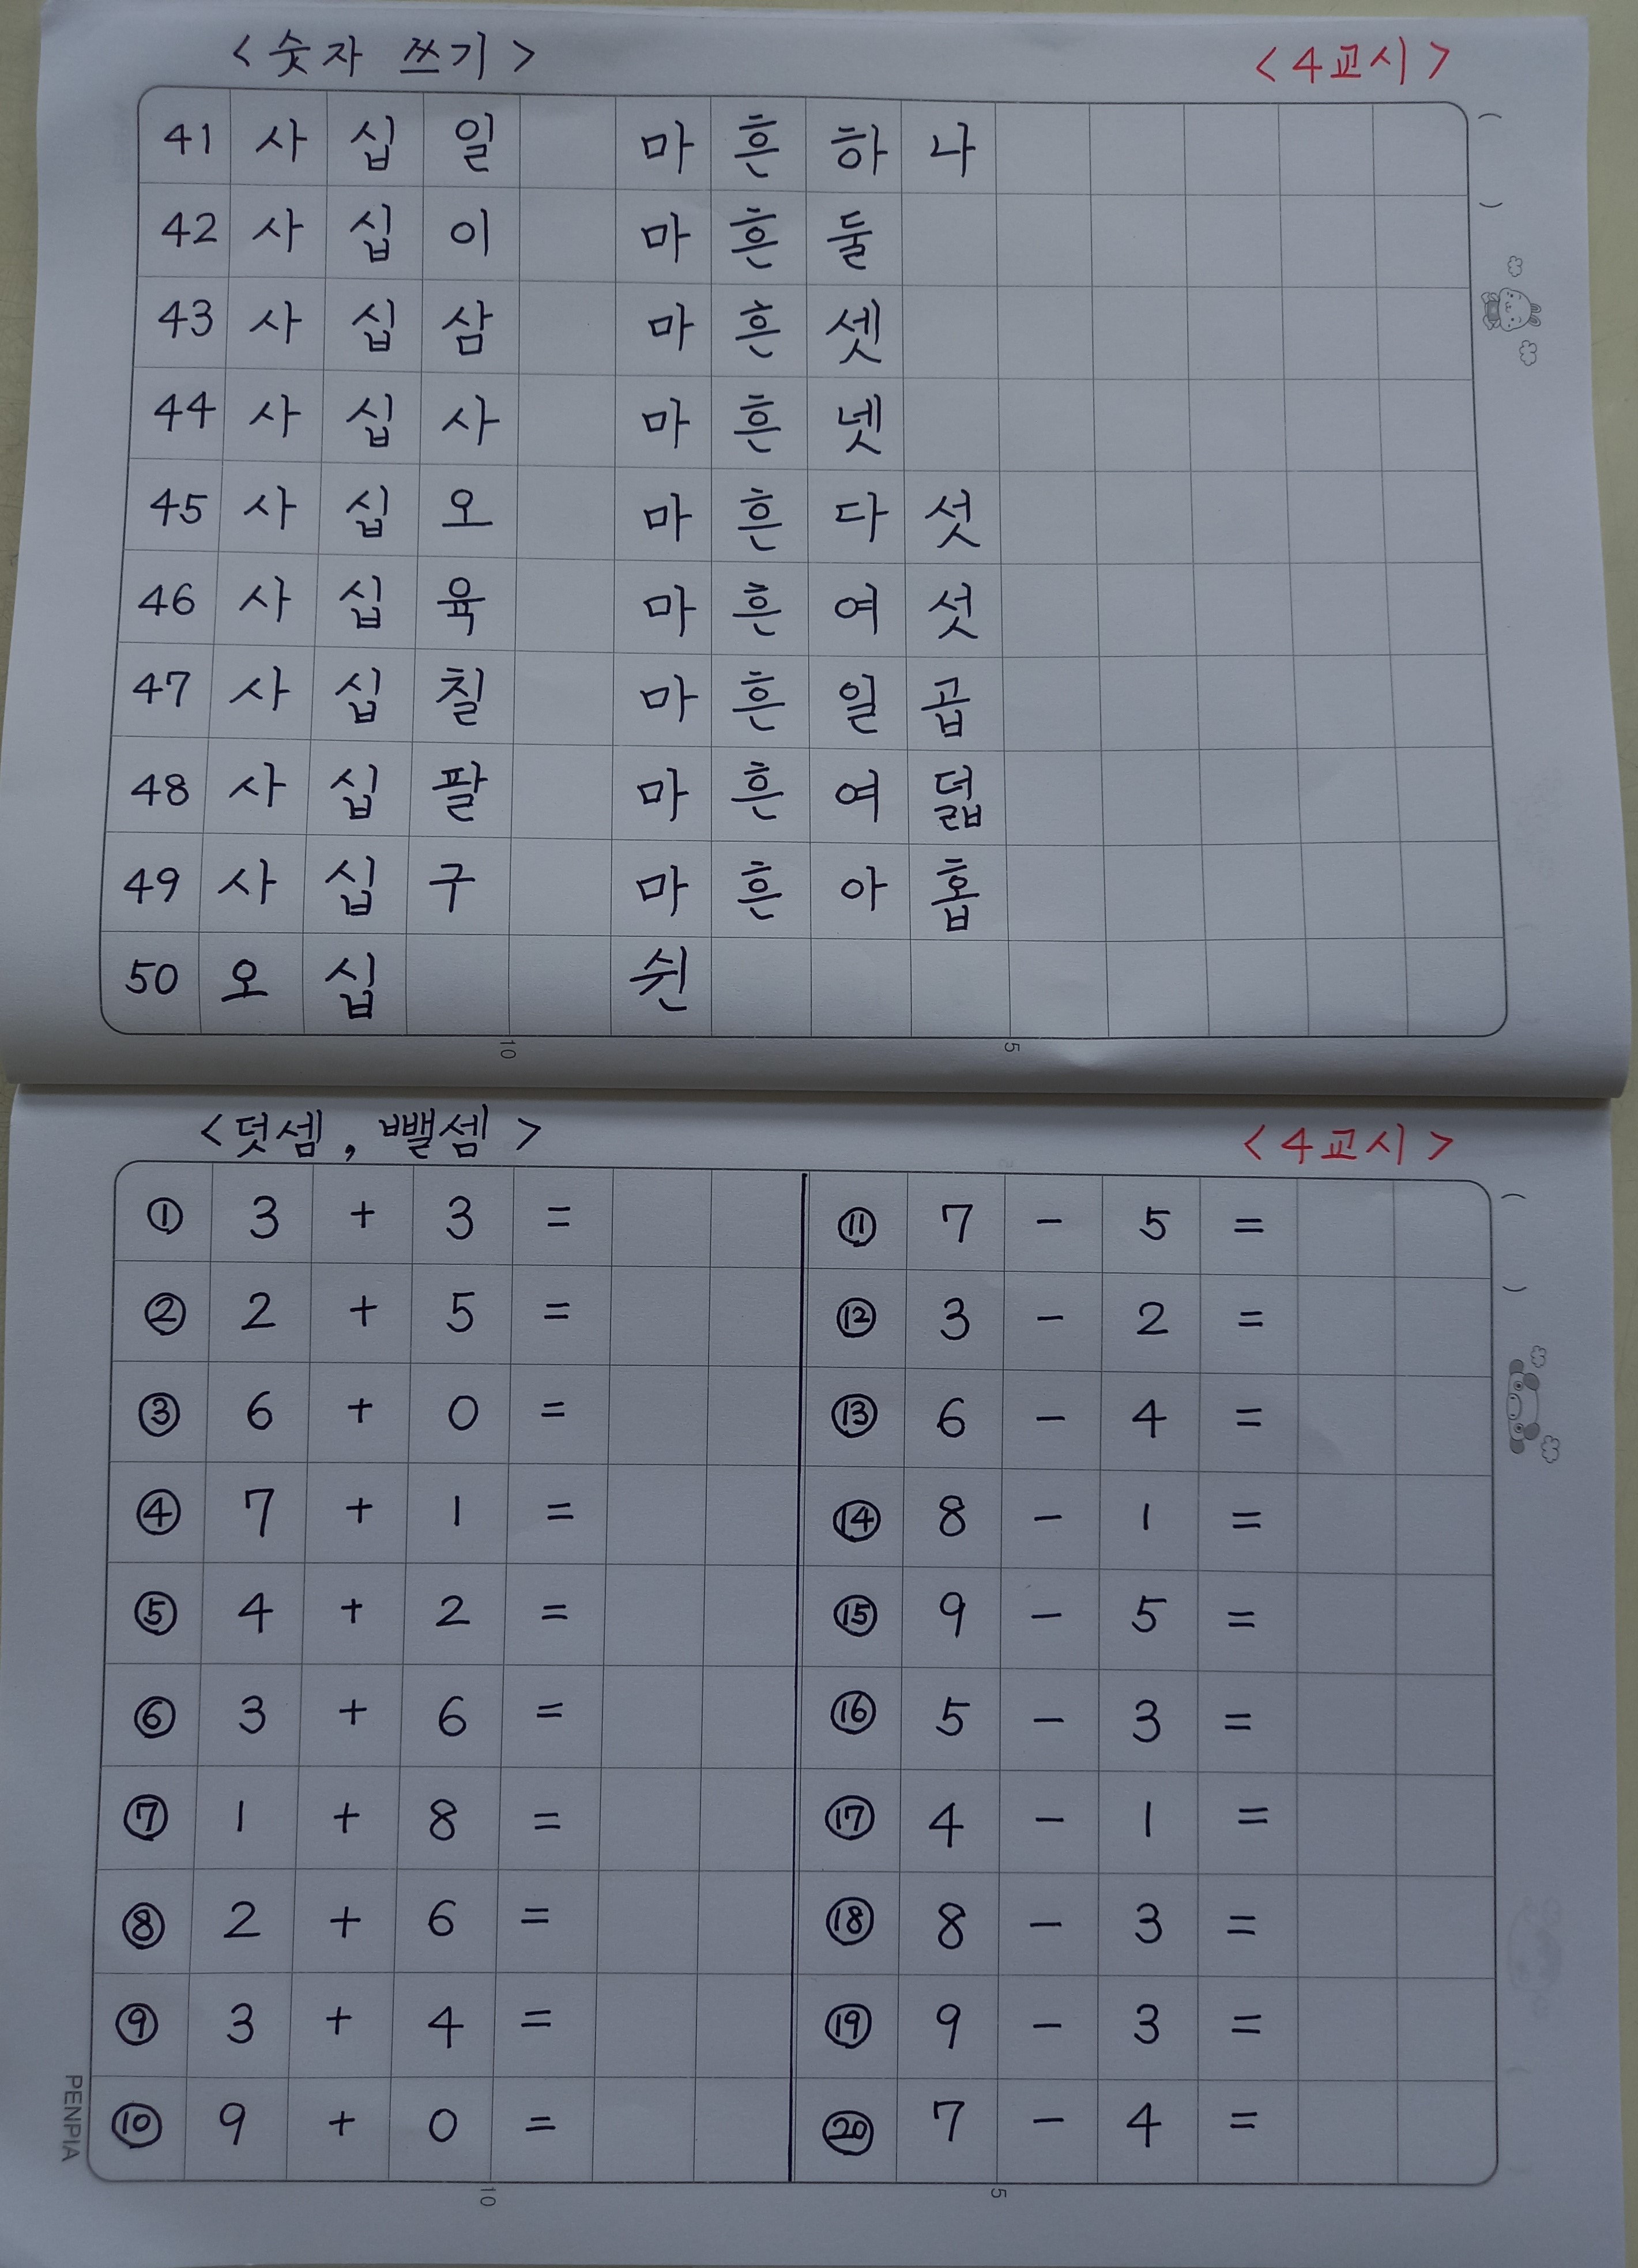 < 숫자 쓰기 > < 4교시 >
41 사십일 마흔하나
42 사십이 마흔둘
43 사십삼 마흔셋
44 사십사 마흔넷
45 사십오 마흔다섯
46 사십육 마흔여섯
47 사십칠 마흔일곱
48 사십팔 마흔여덟
49 사십구 마흔아홉
50 오십 쉰
10 5
< 덧셈, 뺄셈 > < 4교시 >
① 3 + 3 = ⑪ 7 - 5 =
② 2 + 5 = ⑫ 3 - 2 =
③ 6 + 0 = ⑬ 6 - 4 =
④ 7 + 1 = ⑭ 8 - 1 =
⑤ 4 + 2 = ⑮ 9 - 5 =
⑥ 3 + 6 = ⑯ 5 - 3 =
⑦ 1 + 8 = ⑰ 4 - 1 =
⑧ 2 + 6 = ⑱ 8 - 3 =
⑨ 3 + 4 = ⑲ 9 - 3 =
⑩ 9 + 0 = ⑳ 7 - 4 =
10 5
PENPIA